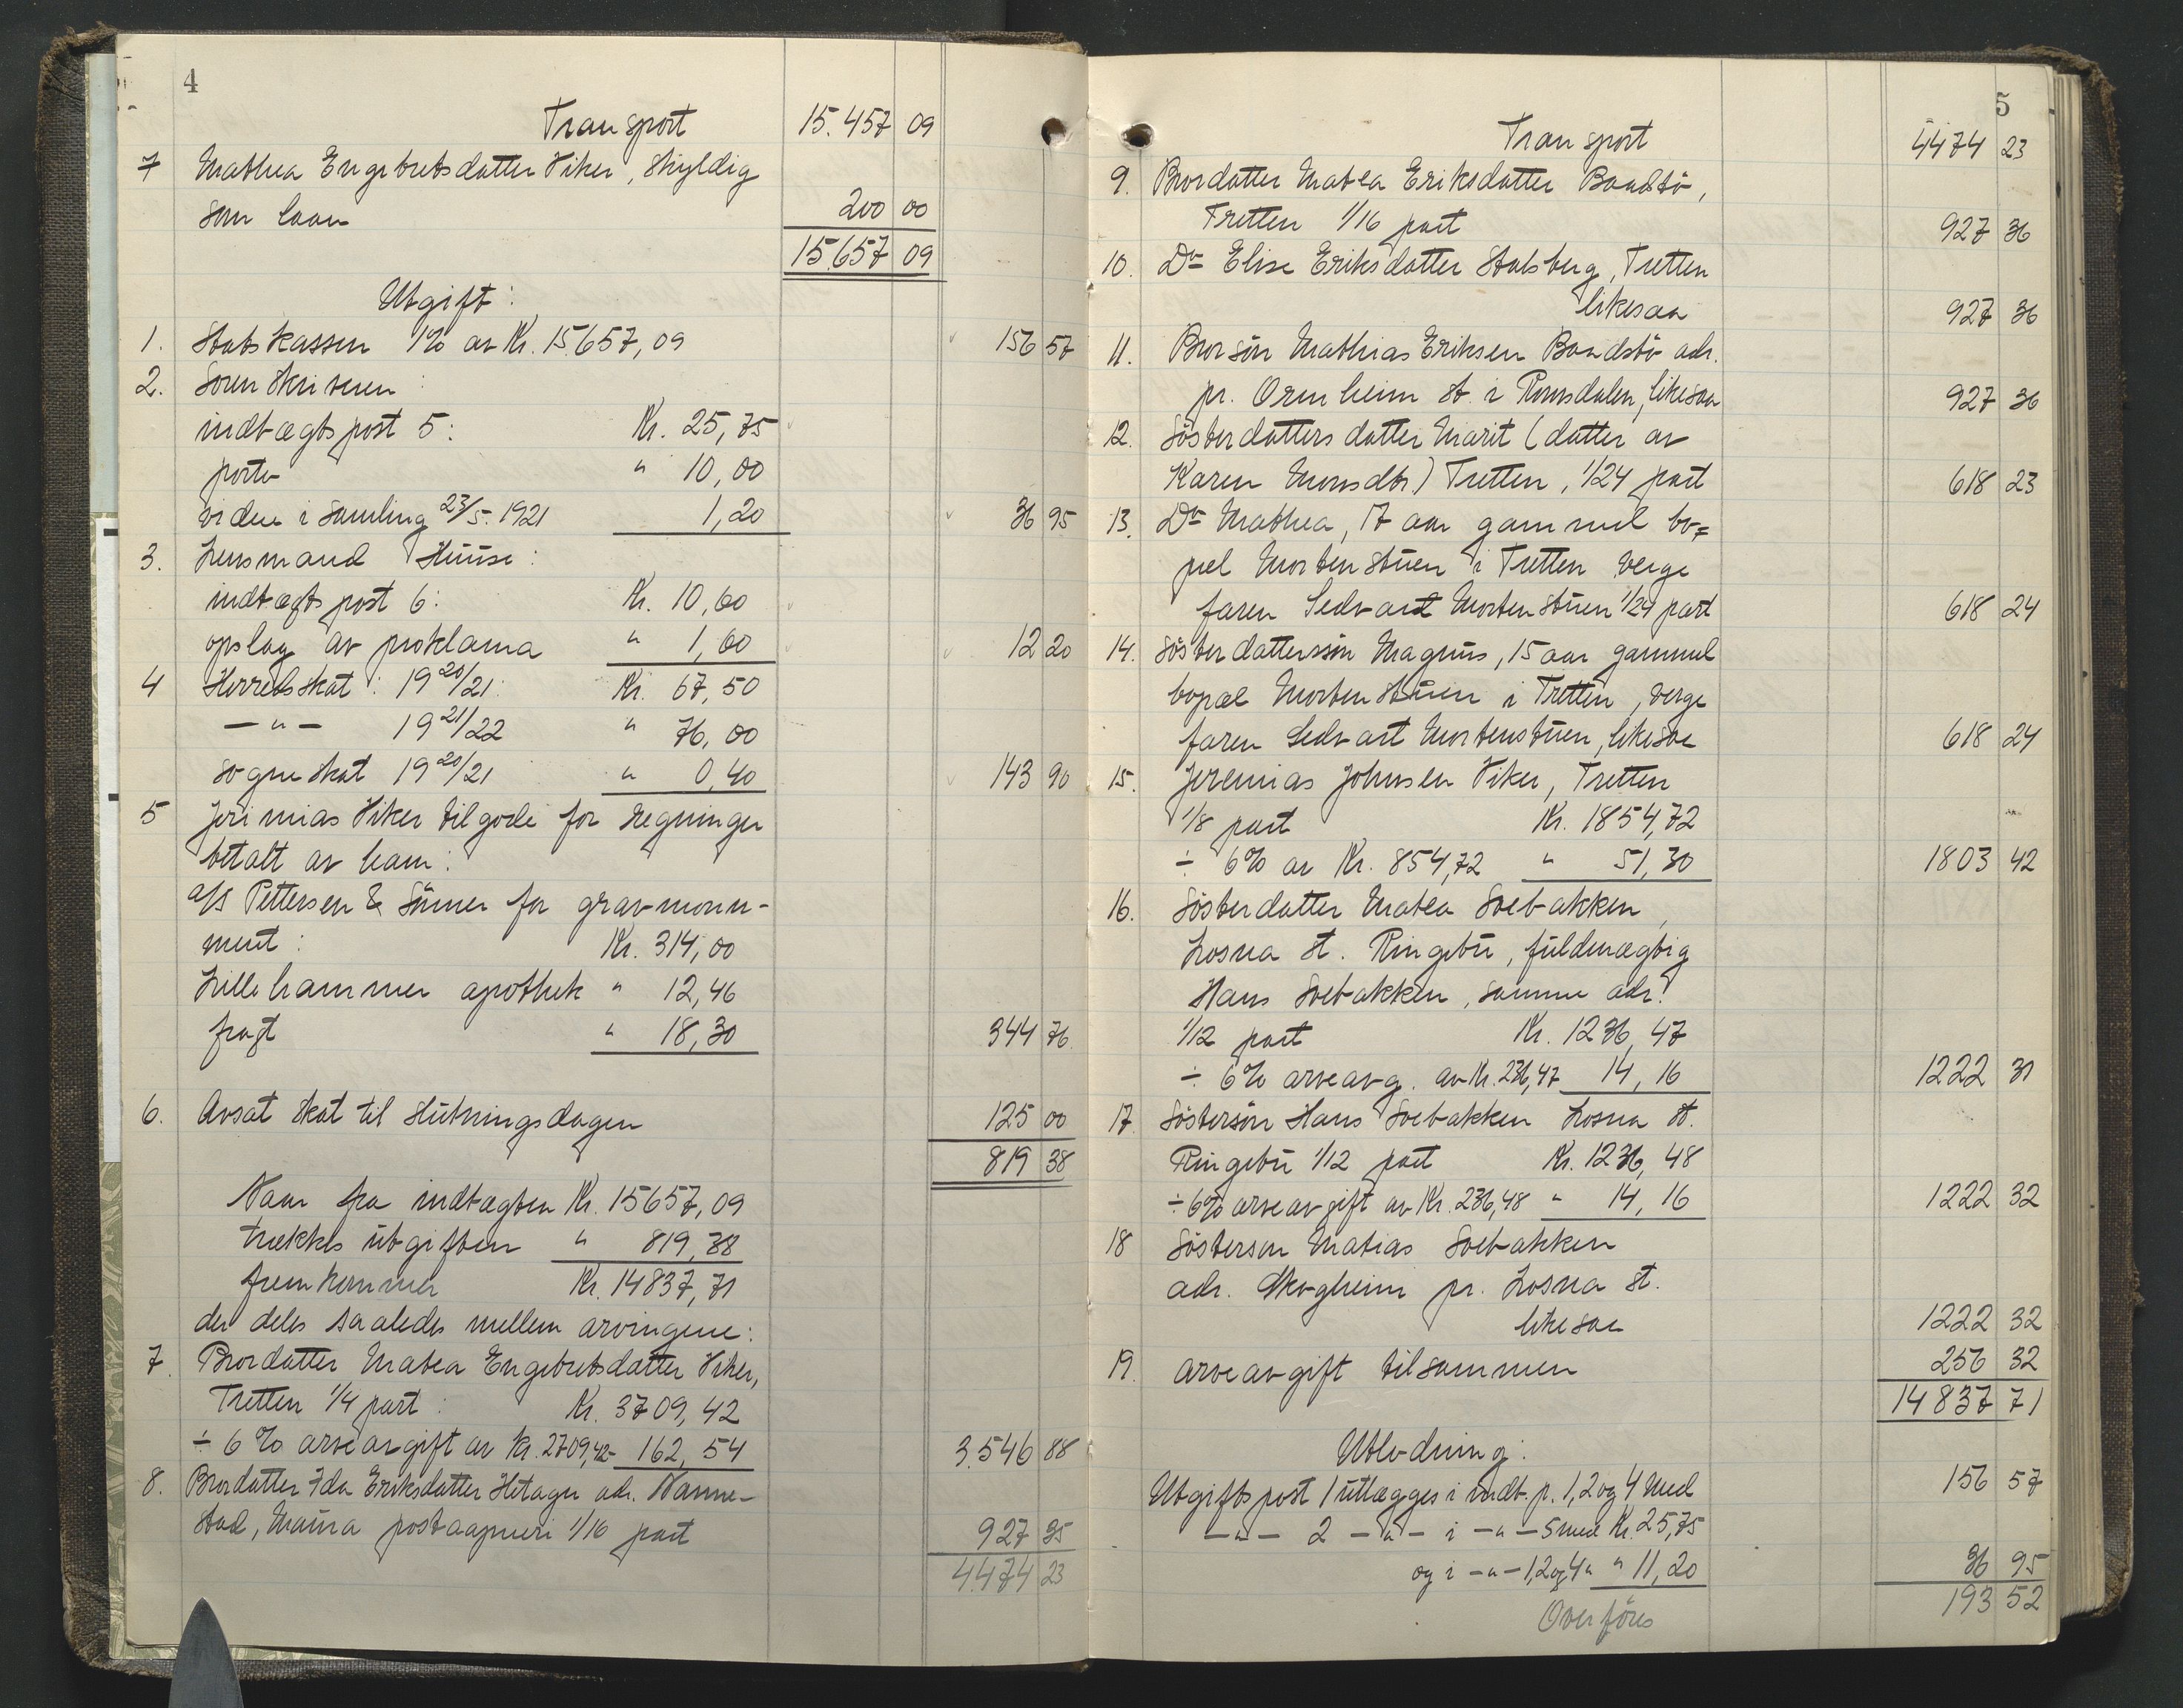 4
Transport 15.457 09
7 Mathea Engebretsdatter Viker, skyldig
som laan 200 00
15.657 09
Utgift:
1. Statskassen 1% av Kr. 15657,09 156 57
2. Sorenskriveren:
indtægtspost 5: Kr. 25,75
porto " 10,00
videre i samling 23/5. 1921 1,20 36 95
3. Lensmand Huuse:
indtægts post 6: Kr. 10,60
opslag av proklama " 1,60 12 20
4 Herredsskat: 1920/21: Kr. 67,50
—"— 1921/22 " 76,00
sogneskat 1920/21 " 0,40 143 90
5 Jerimias Viker tilgode for regninger
betalt av ham:
a/s Pettersen & Sönner for gravmonu-
ment: Kr. 314,00
Lillehammer apothek " 12,46
fragt " 18,30 344 76
6. Avsat skat til slutningsdagen 125 00
819 38
Naar fra indtægten Kr. 15657,09
trækkes utgiften " 819,38
fremkommer Kr. 14837,71
der deles saaledes mellem arvingene:
7. Brordatter Matea Engebretsdatter Viker,
Tretten 1/4 part: Kr. 3709,42
÷ 6% arveavgift av Kr. 2709,42 - 162,54 3.546 88
8. Brordatter Ida Eriksdatter adr. Nanne-
stad, Maura postaapneri 1/16 part 927 35
4474 23
5
Transport 4474 23
9. Brordatter Matea Eriksdatter Baadstö,
Tretten 1/16 part 927 36
10. Do Elise Eriksdatter Stalsberg, Tretten
likesaa 927 36
11. Brorsön Mathias Eriksen Baadstö adr.
pr. Ormheim st. i Romsdalen, likesaa 927 36
12. Sösterdatters datter Marit (datter av
Karen Monsdtr.) Tretten, 1/24 part 618 23
13. Do Mathea, 17 aar gammel bo=
pel Mortenstuen i Tretten verge
faren Sedvart Mortenstuen 1/24 part 618 24
14. Sösterdattersön Magnus, 15 aar gammel
bopæl Mortenstuen i Tretten, verge
faren Sedvart Mortenstuen, likesaa 618 24
15. Jeremias Johnsen Viker, Tretten
1/8 part Kr. 1854,72
÷ 6% av Kr. 854,72 " 51,30 1803 42
16. Sösterdatter Matea Soebakken,
Losna st. Ringebu, fuldmægtig
Hans Soebakken, samme adr.
1/12 part Kr. 1236,47
÷ 6% arveavg. av Kr. 236,47 14,16 1222 31
17 Söstersön Hans Soebakken Losna st.
Ringebu 1/12 part Kr. 1236,48
÷ 6% arveavgift av Kr. 236,48 - 14,16 1222 32
18 Söstersön Matias Soebakken
adr. Skogheim pr. Losna st.
likesaa 1222 32
19. arveavgift tilsammen 256 32
14837 71
Utlodning:
Utgiftspost 1 utlægges i indt. p. 1, 2 og 4 med 156 57
—"— 2 —"— i —"— 5 med Kr. 25,75
og i —"— 1,2 og 4 " " 11,20 36 95
193 52
Overföres